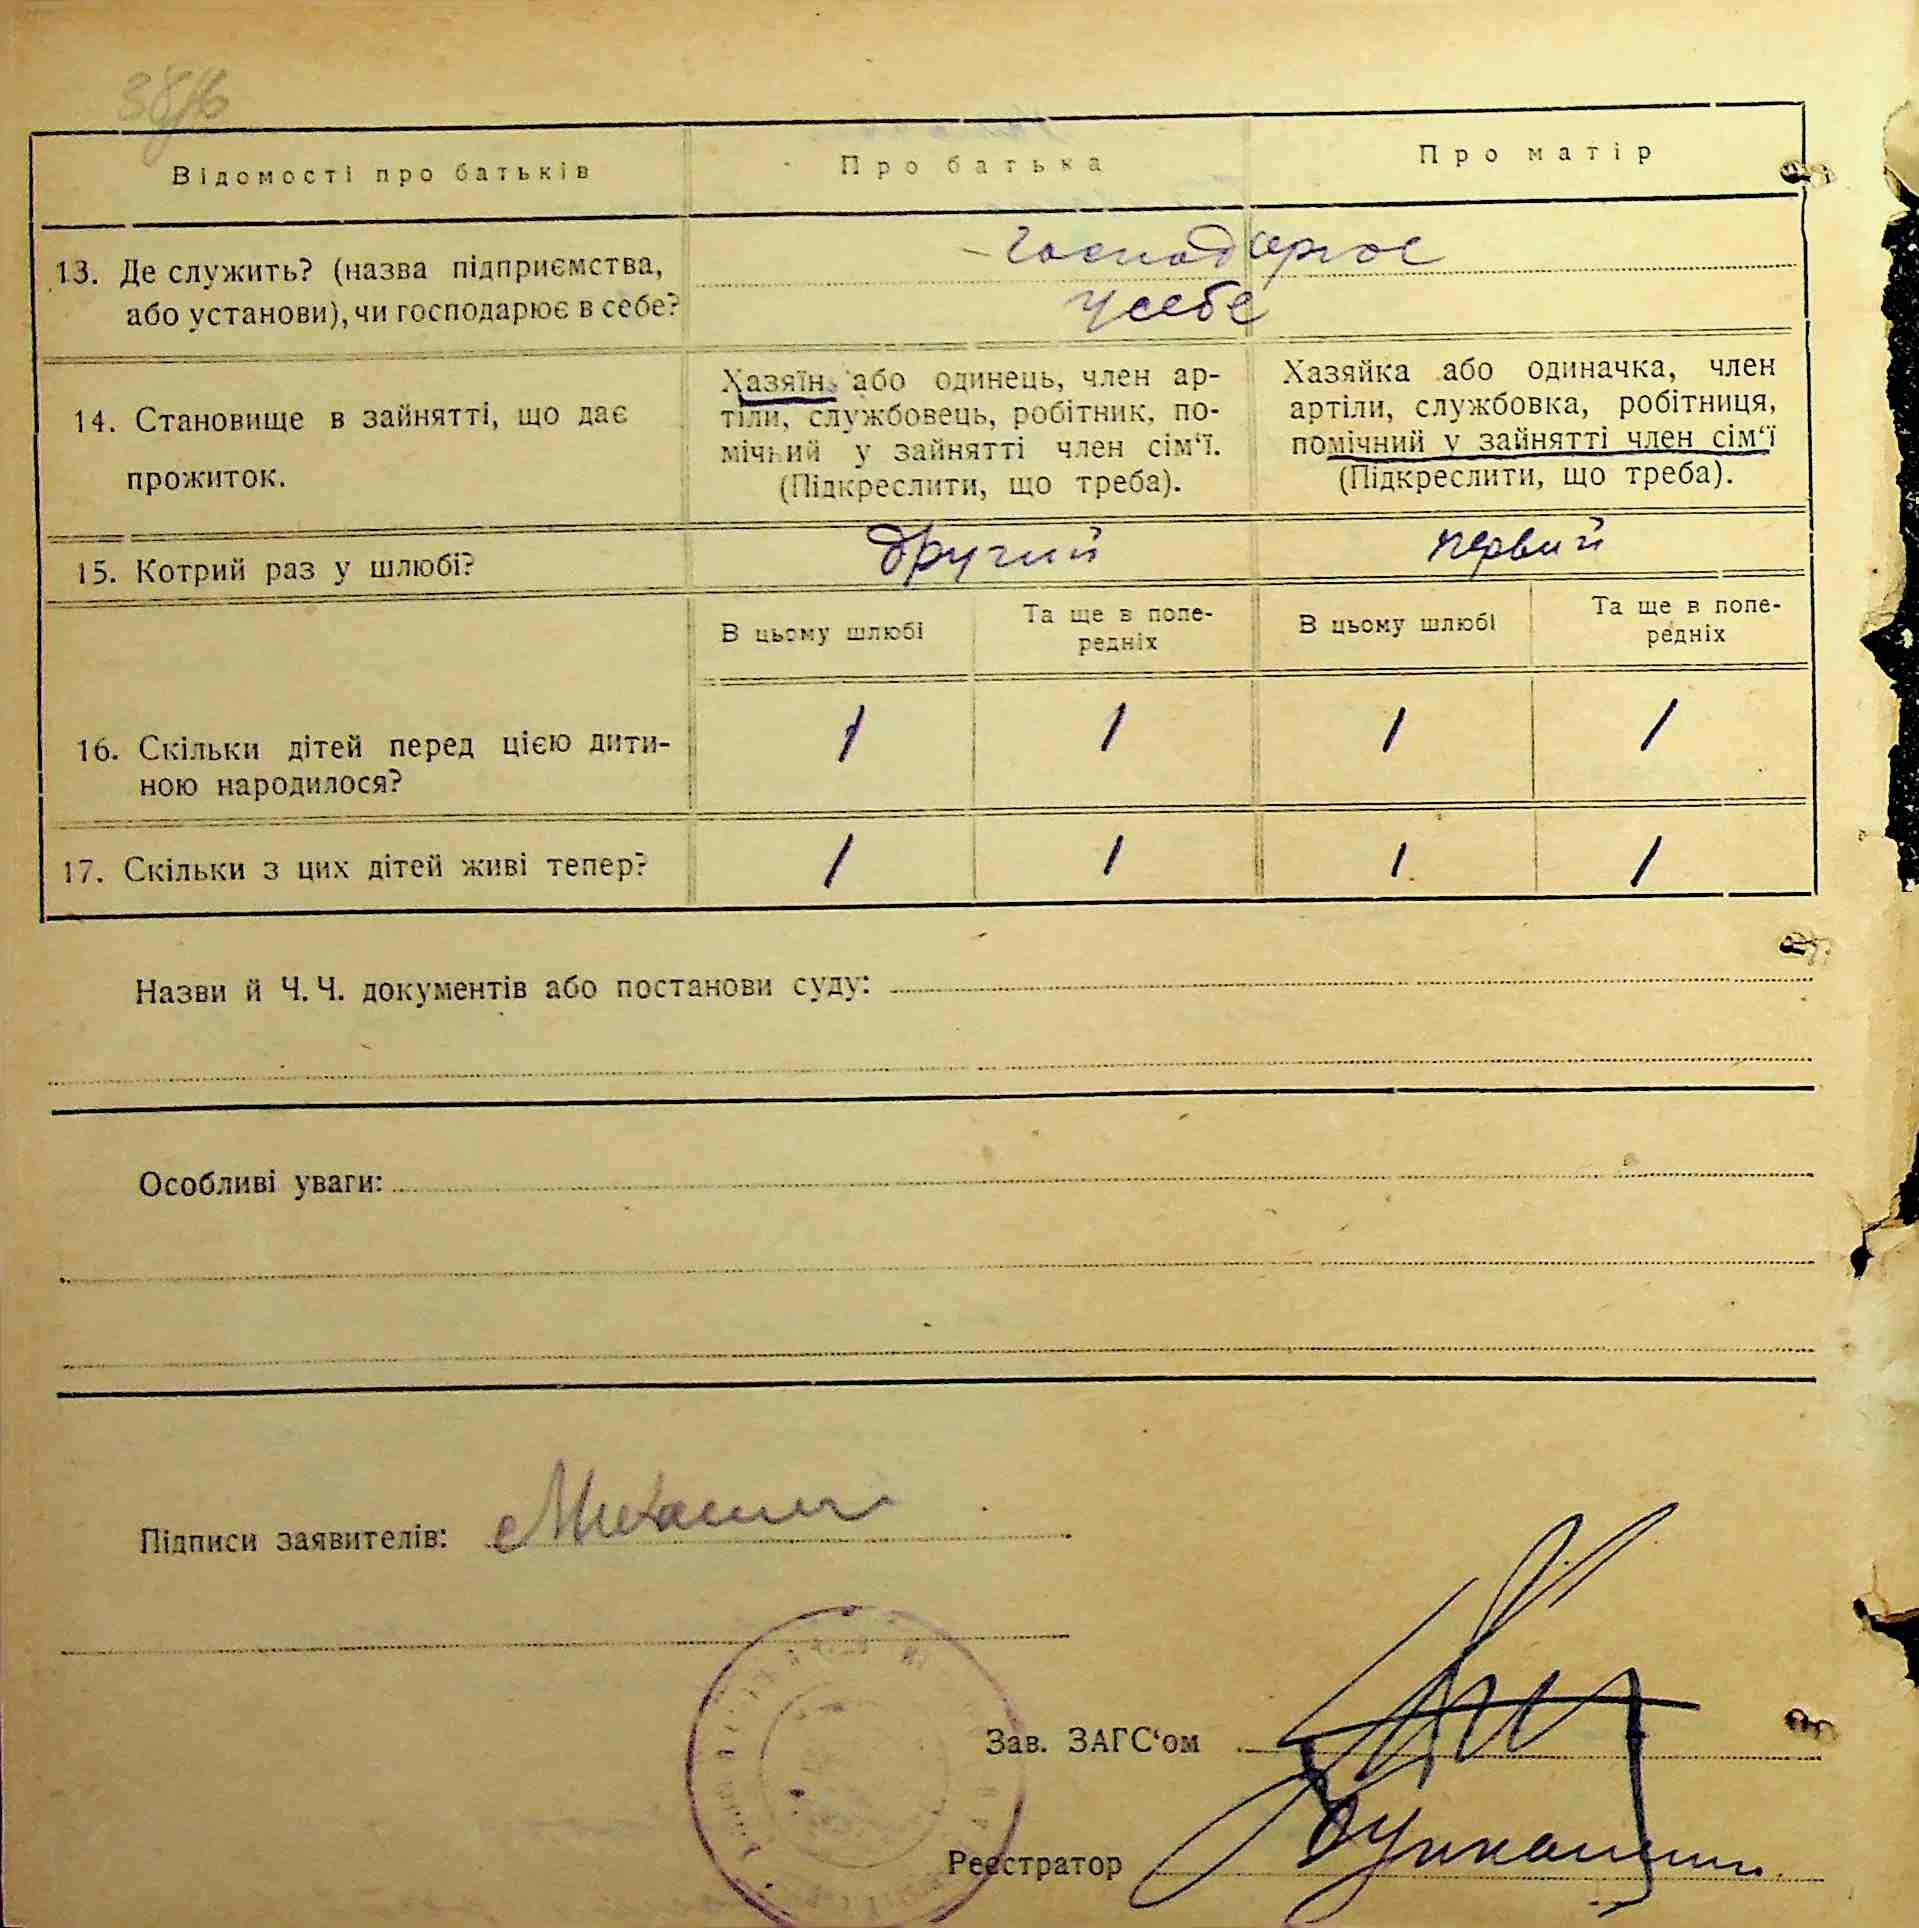 Відомості про батьків
Про батька
Про матір
13. Де служить? (назва підприємства,
або установи), чи господарює в себе?
господарює
у себе
14. Становище в зайнятті, що дає
прожиток.
Хазяїн або одинець, член ар-
тіли, службовець, робітник, по-
мічний у зайнятті член сім‘ї.
(Підкреслити, що треба).
Хазяйка або одиначка, член
артіли, службовка, робітниця,
помічний у зайнятті член сім‘ї
(Підкреслити, що треба).
15. Котрий раз у шлюбі?
другий
первий
В цьому шлюбі
Та ще в попе-
редніх
В цьому шлюбі
Та ще в попе-
редніх
16. Скільки дітей перед цією дити-
ною народилося?
/ / / /
17. Скільки з цих дітей живі тепер?
/ / / /
Назви й Ч. Ч. документів або постанови суду:
Особливі уваги:
Підписи заявителів:
Зав. ЗАГС‘ом
Реєстратор